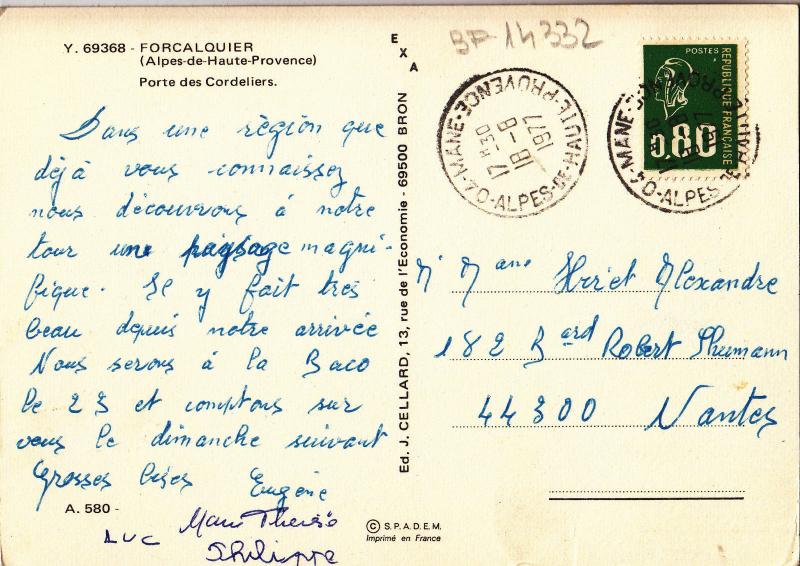 Y. 69368 - FORCALQUIER
(Alpes-de-Haute-Provence)
Porte des Cordeliers.
Dans une région que
déjà vous connaissez
nous découvrons à notre
tour une paysage magni-
fique. Il y fait très
beau depuis notre arrivée
Nous serons à la Baco
le 23 et comptons sur
vous le dimanche suivant
Grosses bises Eugène
Marie Thérèse
LUC Philippe
A. 580 -
EXA
Ed. J. CELLARD, 13, rue de l'Economie - 69500 BRON
BF-14332
17 H 30
18 - 8
1977
MANE - 40 - ALPES-DE-HAUTE-PROVENCE
POSTES
REPUBLIQUE FRANÇAISE
0,80
MANE - 40 - ALPES
M Mme Hiriet Alexandre
182 Bard Robert Shumann
44300 Nantes
© S.P.A.D.E.M.
Imprimé en France